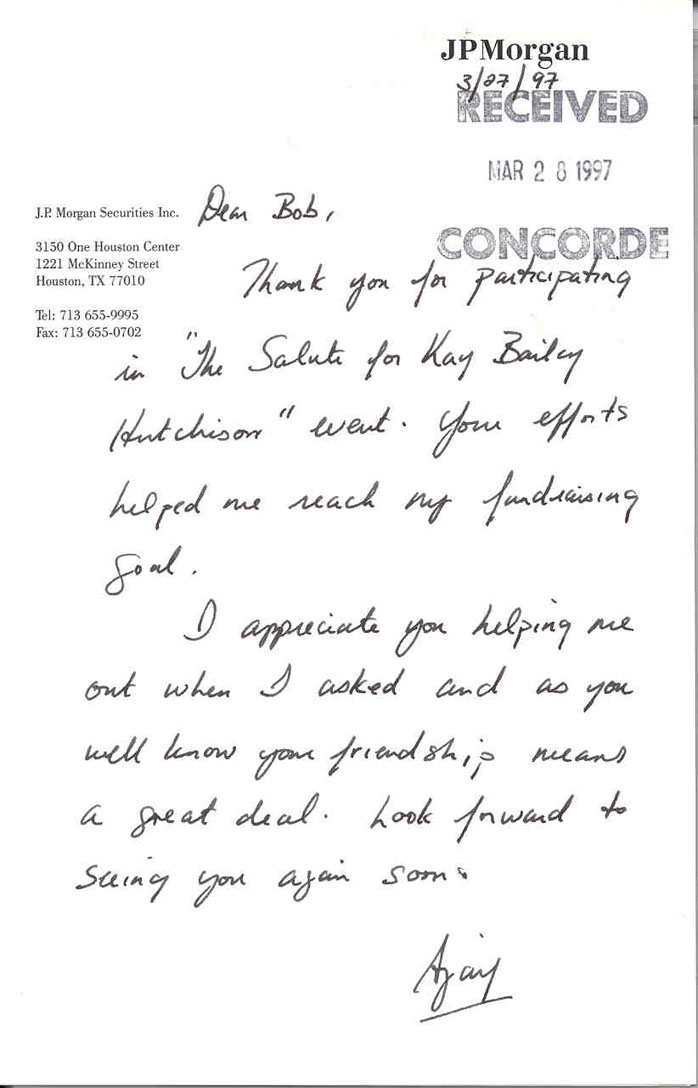 JPMorgan
3/27/97
RECEIVED
MAR 28 1997
CONCORDE
J.P. Morgan Securities Inc.
3150 One Houston Center
1221 McKinney Street
Houston, TX 77010
Tel: 713 655-9995
Fax: 713 655-0702
Dear Bob,
Thank you for participating
in "The Salute for Kay Bailey
Hutchison" event. Your efforts
helped me reach my fundraising
goal.
I appreciate you helping me
out when I asked and as you
well know your friendship means
a great deal. Look forward to
seeing you again soon.
Ajay